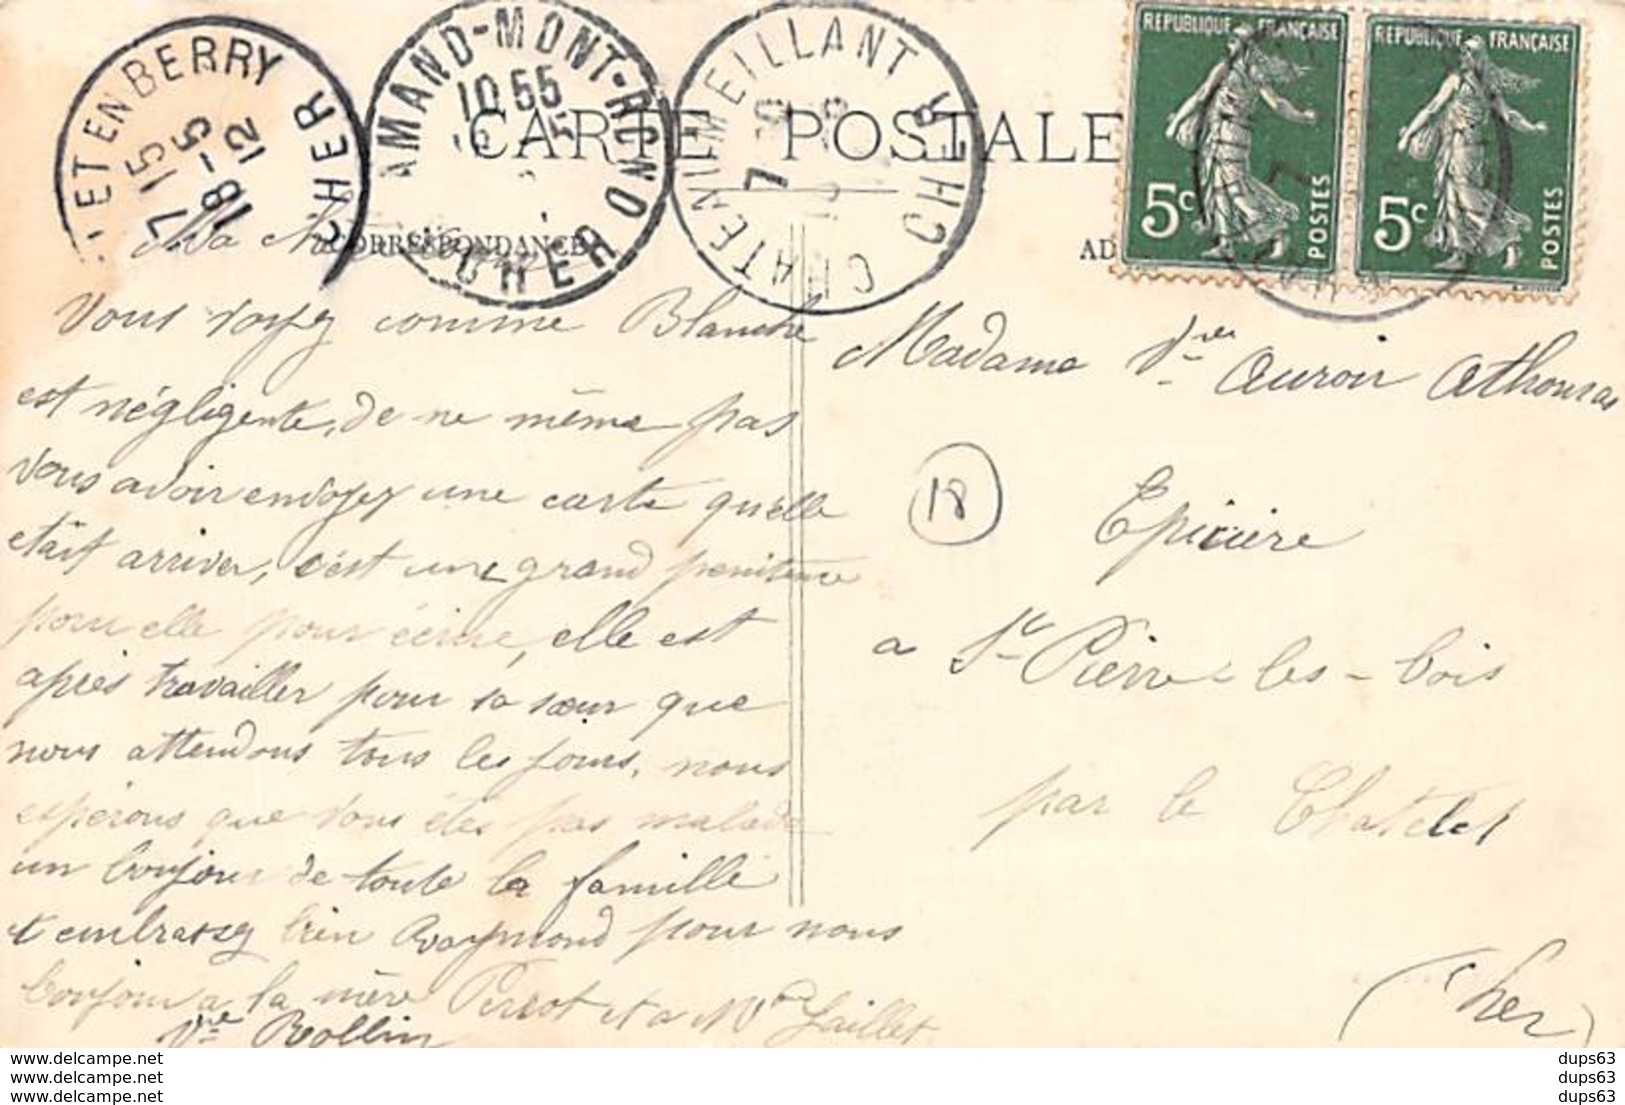 ET EN BERRY
CHER
7 15
18 - 5
12
AMAND-MONT-ROND
10 55
CHER
CHATEAUMEILLANT
CHER
CARTE POSTALE
CORRESPONDANCE
REPUBLIQUE FRANÇAISE
5c
POSTES
REPUBLIQUE FRANÇAISE
5c
POSTES
Ma
Vous voyez comme Blanche
est négligente, de ne même pas
vous avoir envoyez une carte qu'elle
était arriver, c'est une grand penitence
pour elle pour écrire, elle est
après travailler pour sa sœur que
nous attendons tous les jours, nous
espérons que vous étes pas malade
un bonjour de toute la famille
et embrassez bien Raymond pour nous
bonjour a la mère Perrot et a Me Jaillet
Vve Rollin
Madame Vve Auroir Athouras
18
Epicière
a St Pierre-les-bois
par le Chatelet
(Cher)
www.delcampe.com
www.delcampe.com
www.delcampe.com
dups63
dups63
dups63